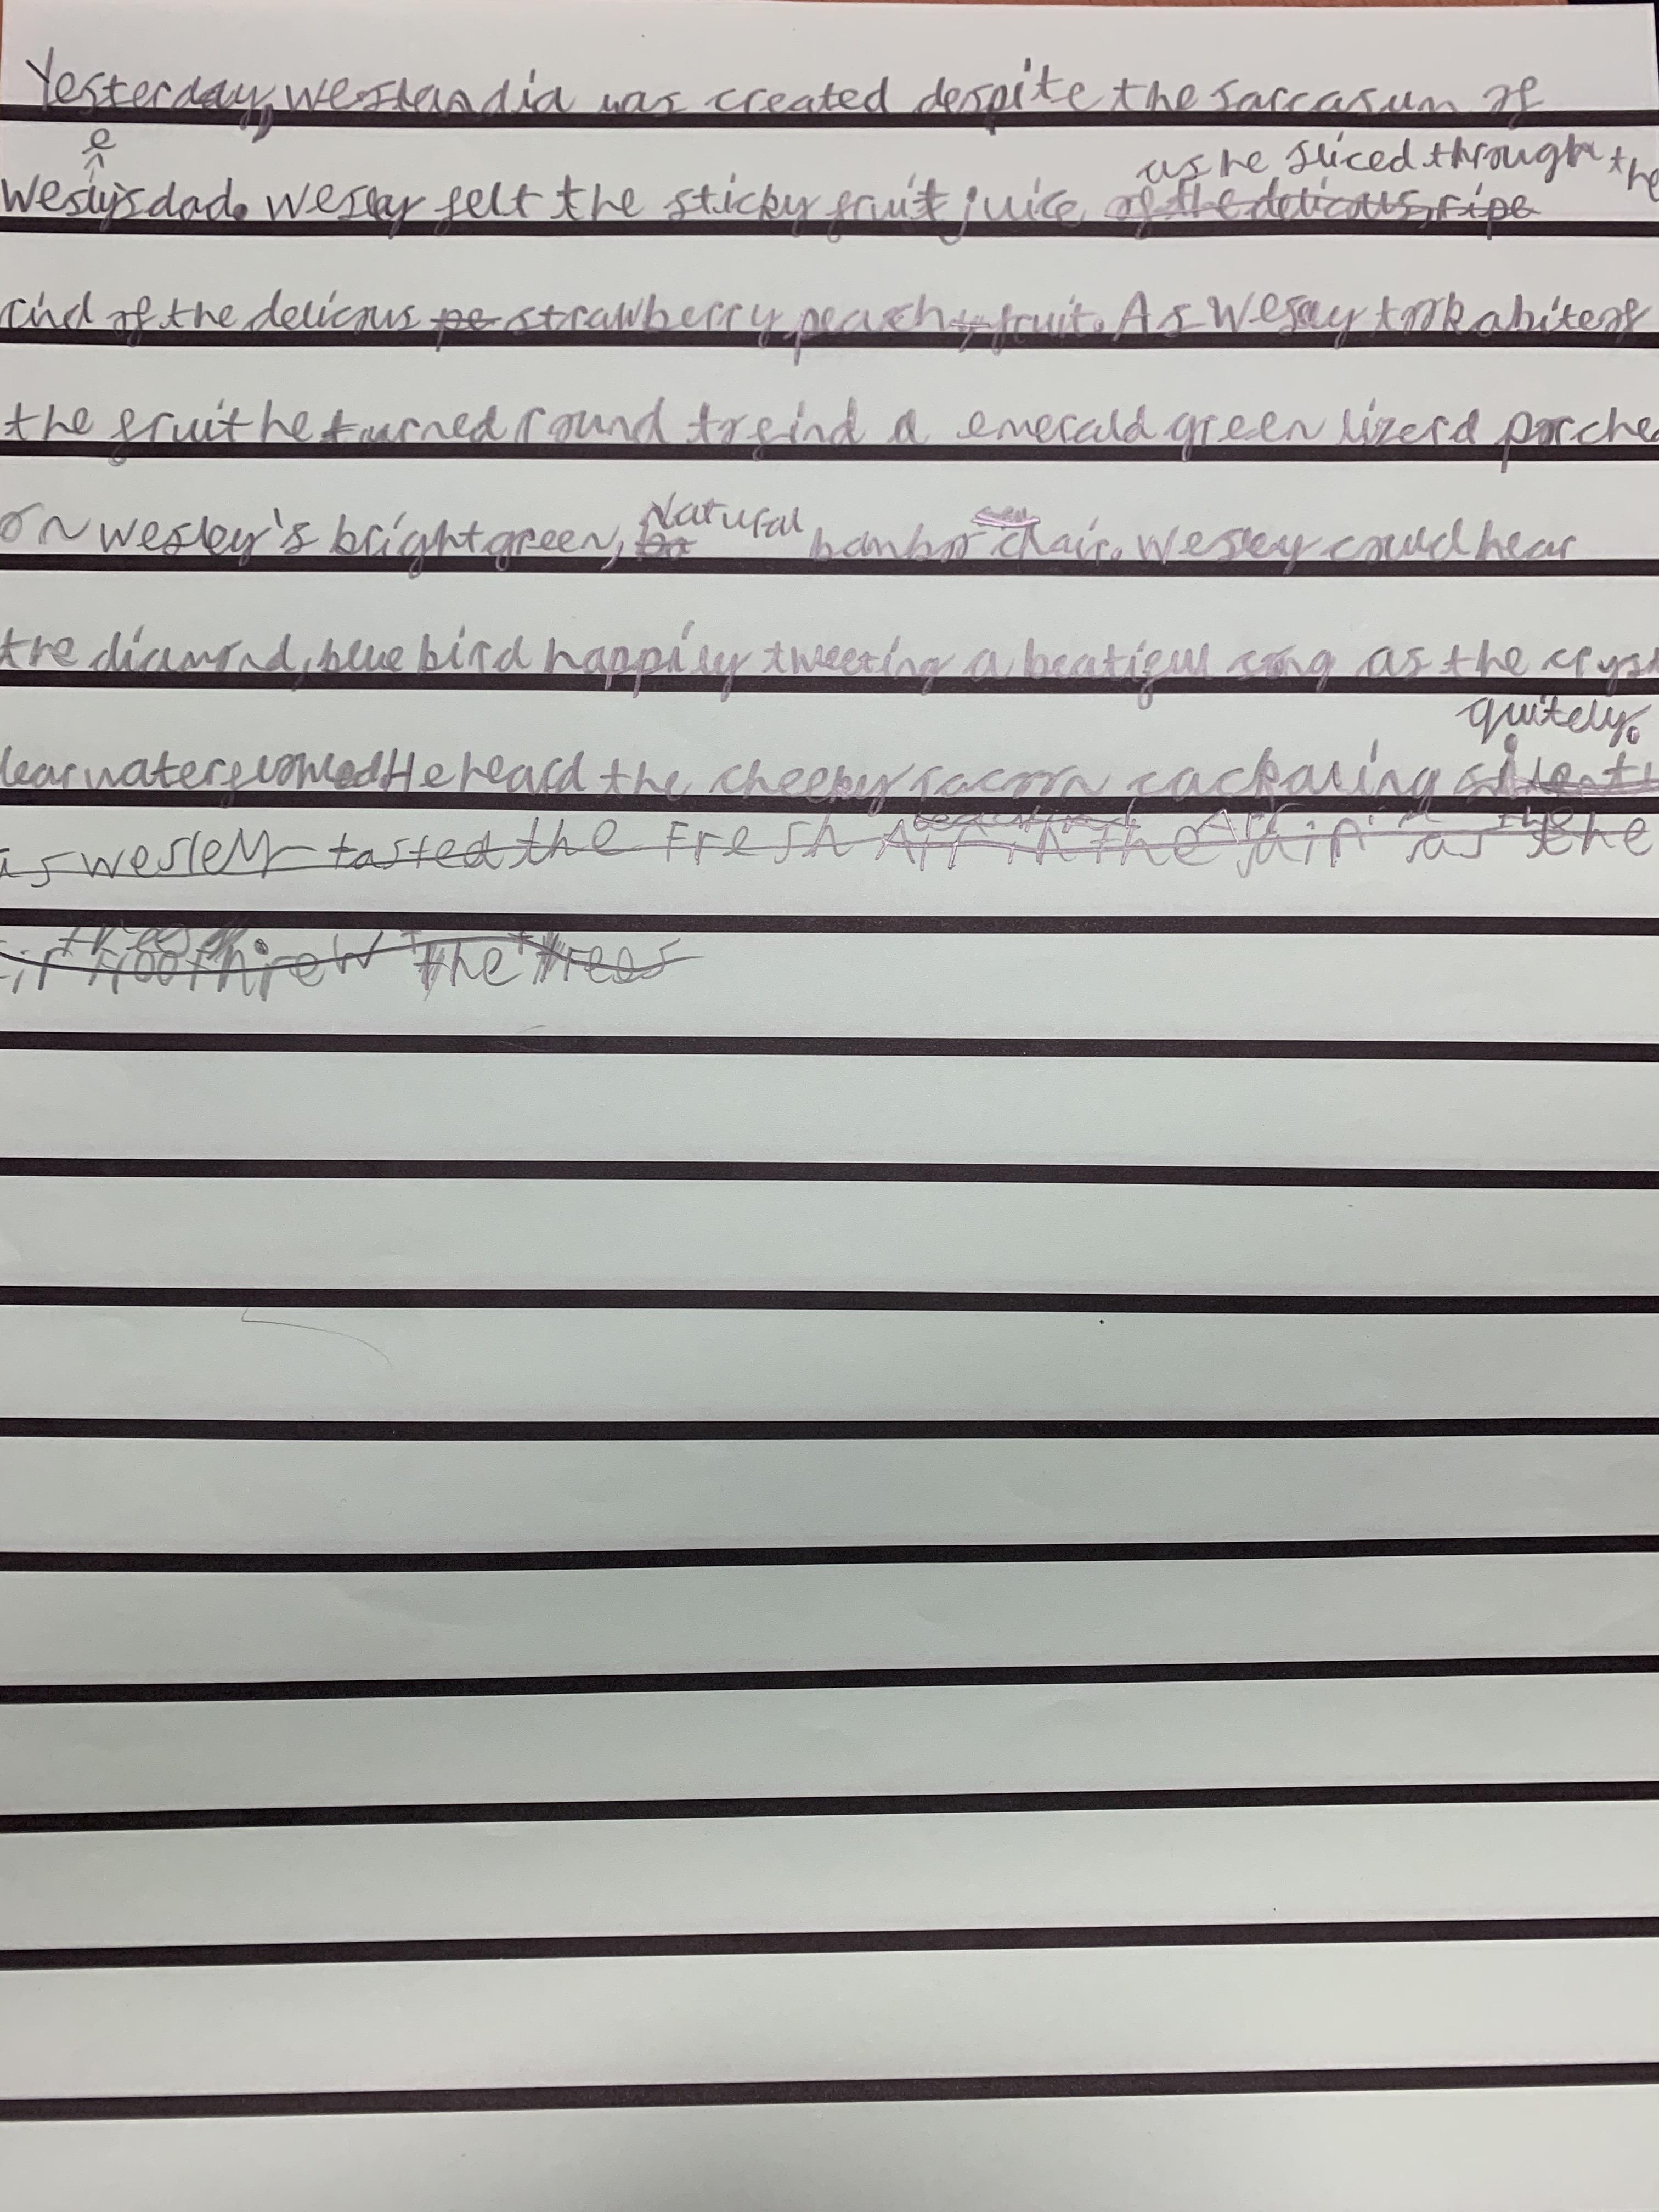 Yesterday, weslandia was created despite the sarcasum of
e
as he sliced through the
weslys dad. Wesley felt the sticky fruit juice of the delicous, ripe
rind of the delicous pe strawberry peach, fruit. As Wesley took a bite of
the fruit he turned round to find a emerald green lizerd porche
Natural
on wesley's bright green, ba bamboo chair. Wesley could hear
the diamond, blue bird happily tweeting a beatiful song as the cryst
quitely.
lear water flowed He heard the cheeky racoon cackaling silently
as wesley tasted the Fresh Air in the air as the
the trees